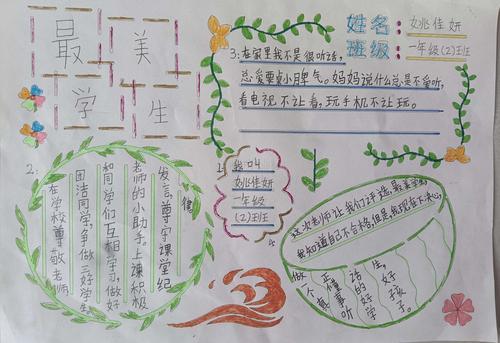 最美
学生
姓名：姚佳妍
班级：一年级(2)班
1.
我叫
姚佳妍
一年级
(2)班
2:
在学校尊敬老师,
团洁同学,争做三好学生
和同学们互相学习,做好
老师的小助手。上课积极
发言,尊守课堂纪
律
3:在家里我不是很听话,
总爱耍点小脾气。妈妈说什么总是不爱听,
看电视不让看,玩手机不让玩。
这次老师让我们评选最美学生,
我知道自己不合格,但是我现在下决心,
做一个
真正懂事听
话的好学
生,好孩子。